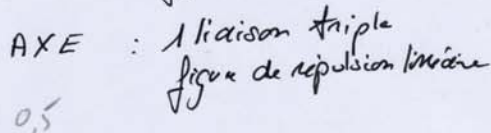 AXE : 1 liaison triple
figure de répulsion linéaire
0,5